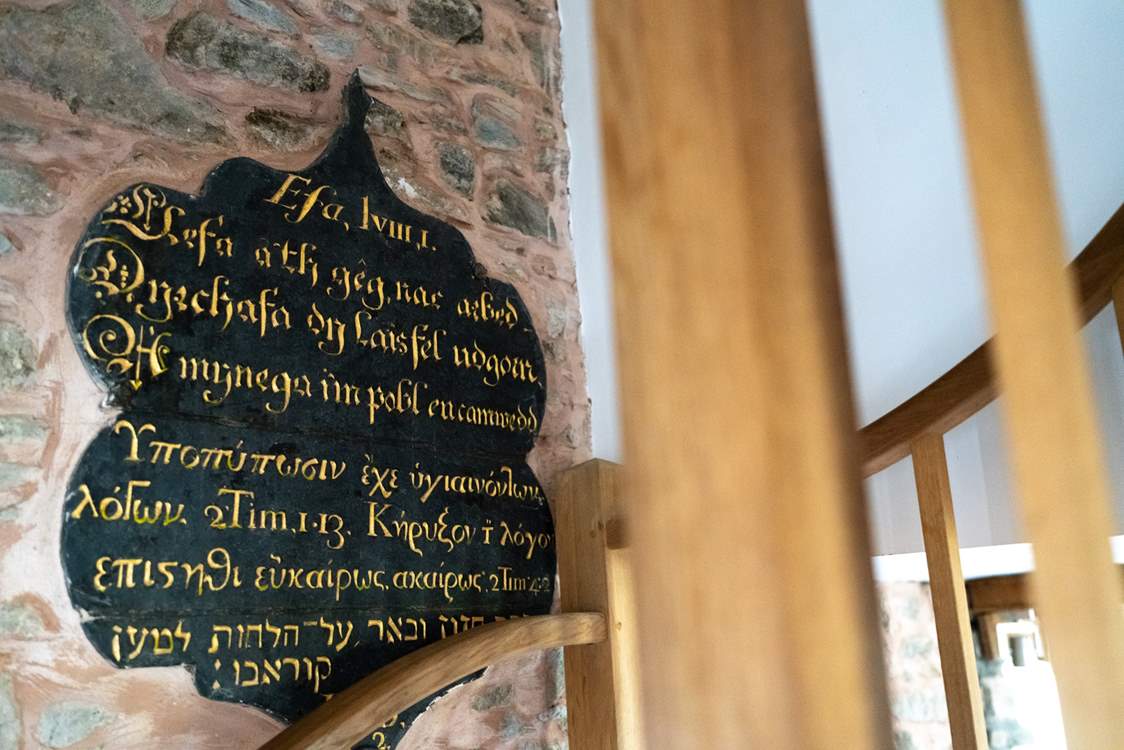 Esa, lviii,1.
Llefa a'th gêg, nac arbed
Dyrchafa dy Lais fel udgorn,
A mynega i'm pobl eu camwedd
Ὑποτύπωσιν ἔχε ὑγιαινόντων
λόγων. 2 Tim,1.13. Κήρυξον τ̈ λόγο
επιϛηθι εὐκαίρως, ακαίρως, 2 Tim 4:2
חזון ובאר על־הלחות למען
קורא בו :